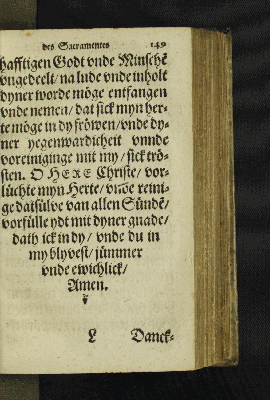 des Sacramentes 149
hafftigen Godt vnde Minschē
vngedeelt/ na lude vnde inholt
dyner worde möge entfangen
vnde nemen/ dat sick myn her-
te möge in dy fröwen/ vnde dy-
ner yegenwardicheit vnnde
voreiniginge mit my/ sick trö-
sten. O HERE Christe/ vor-
lüchte myn Herte/ vnde reini-
ge datsülve van allen Sündē/
vorfülle ydt mit dyner gnade/
dath ick in dy/ vnde du in
my blyvest/ jümmer
vnde ewichlick/
Amen.
L Danck-